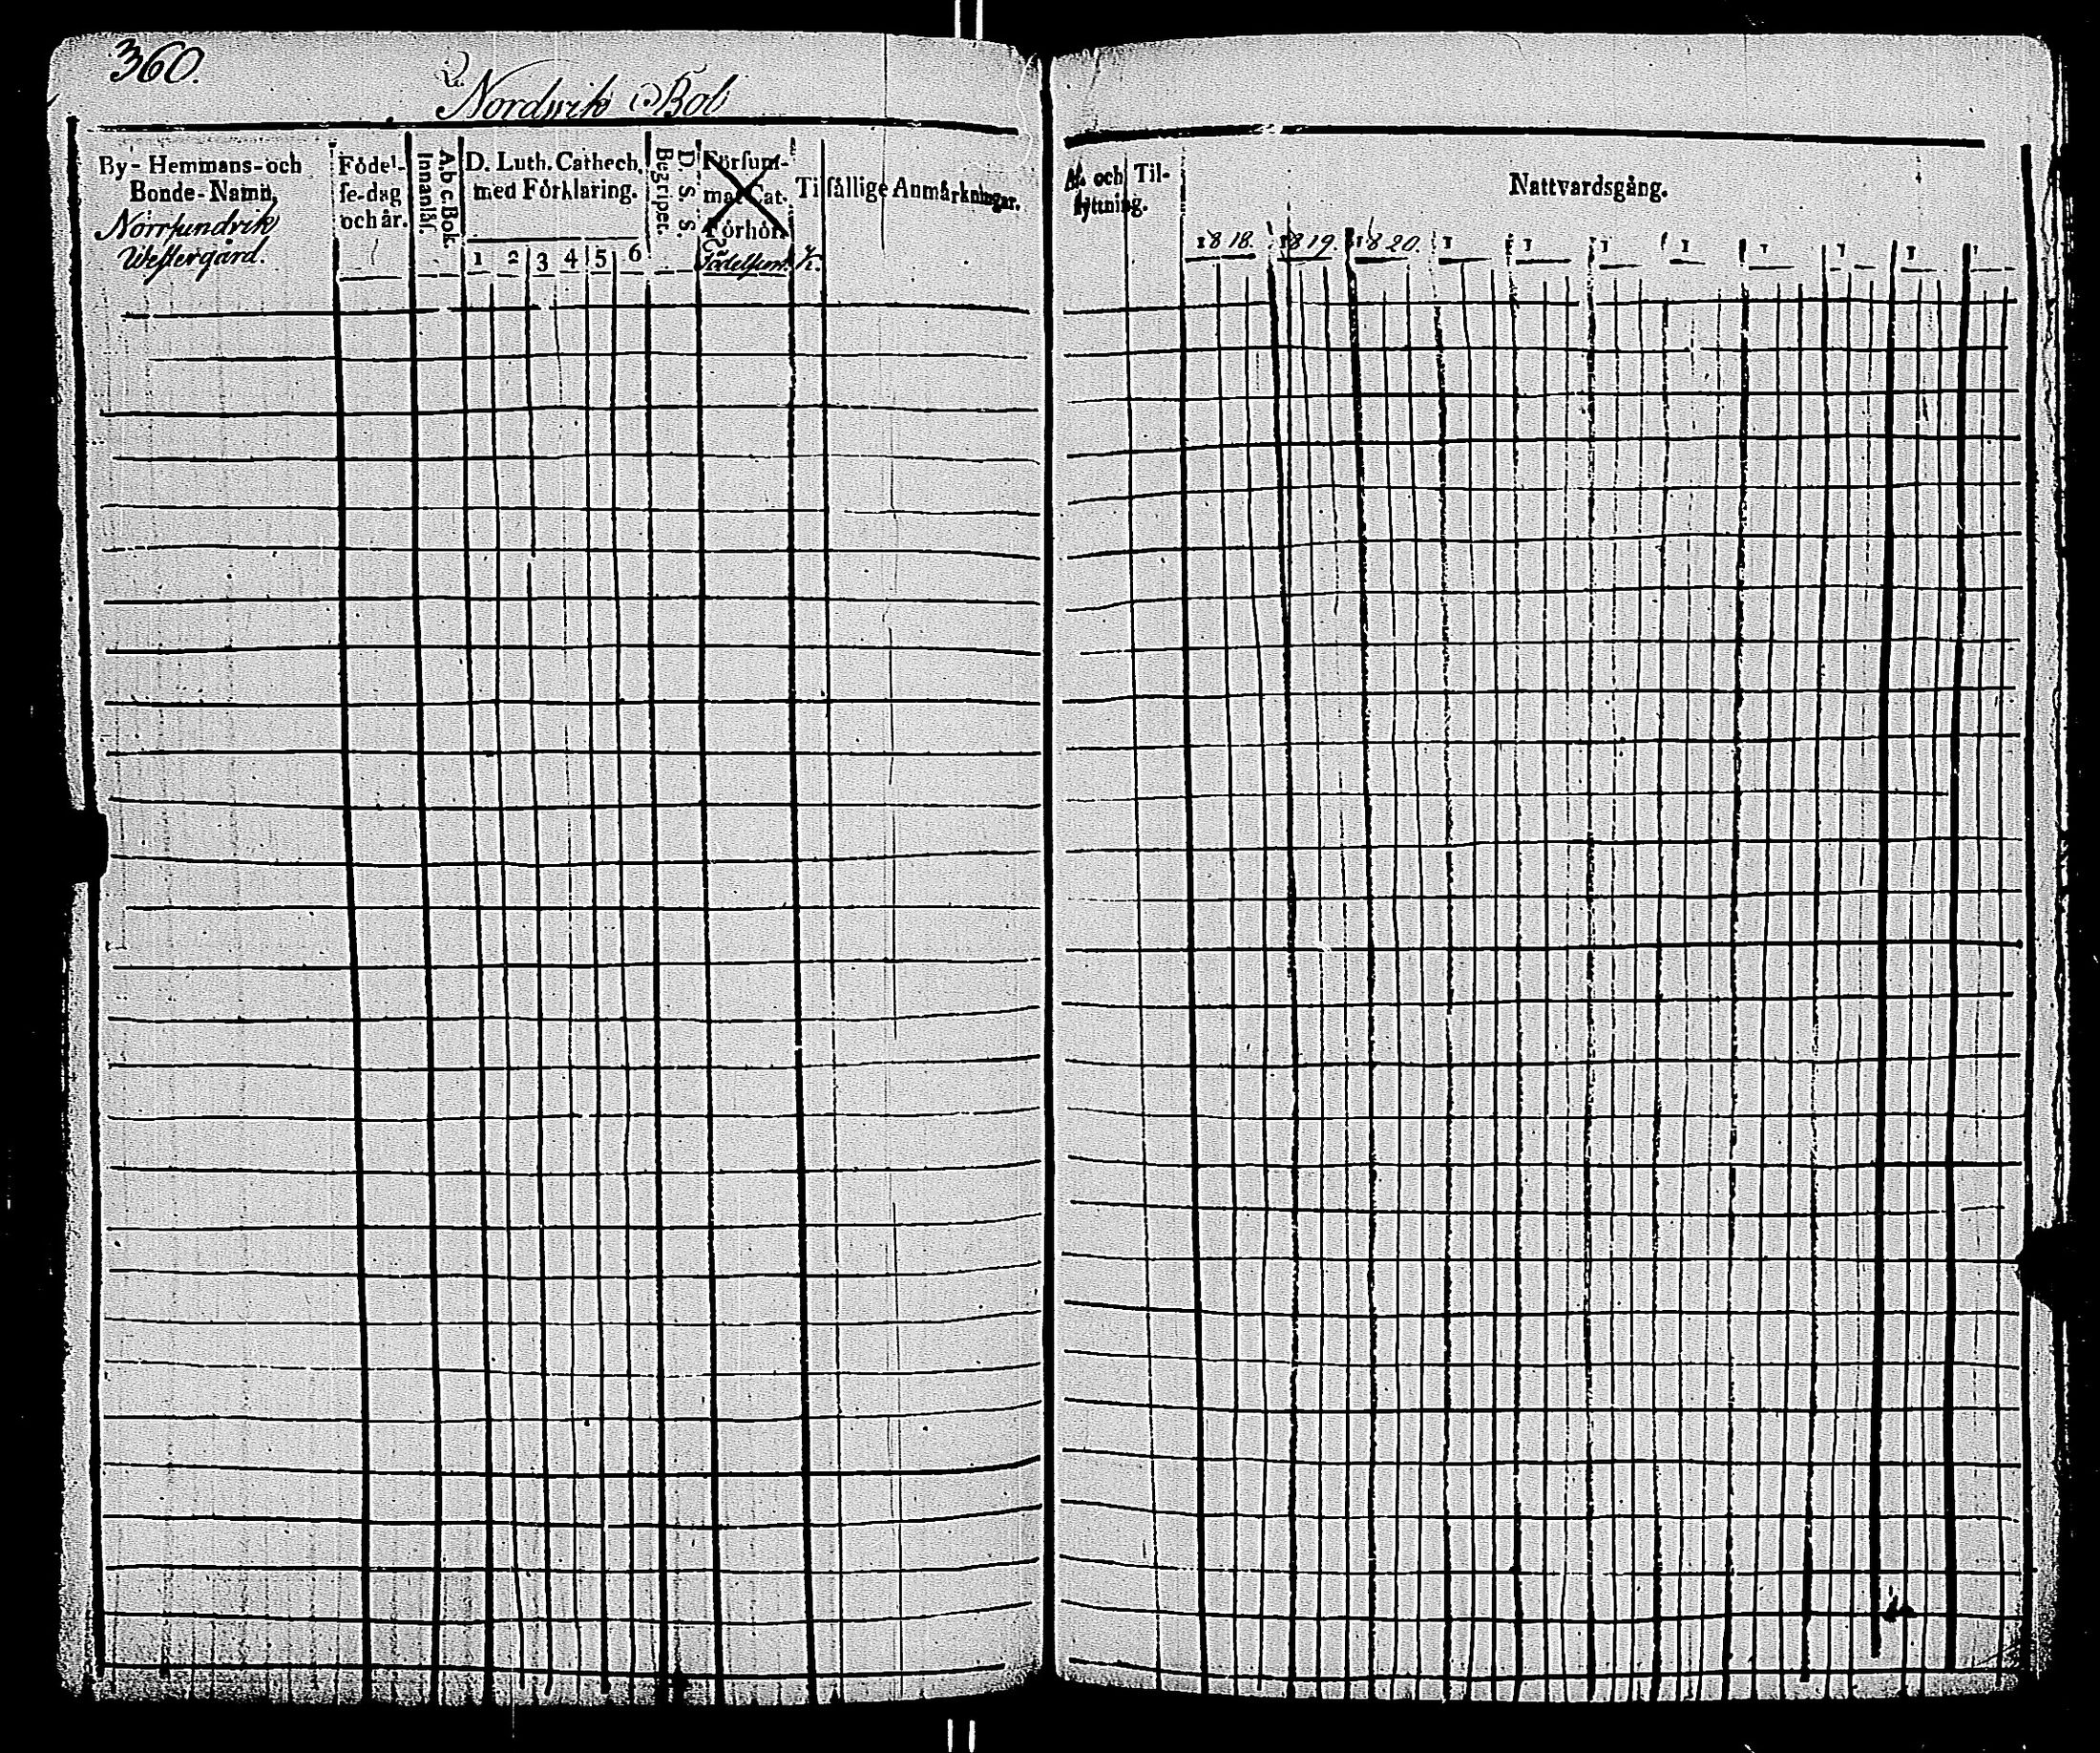 360.
2. Nordvik Bol
By-Hemmans-och
Bonde-Namn,
Norrsundvik
Westergård.
Födel-
se-dag
och år.
A b c Bok.
Innanläs.
D. Luth. Cathech.
med Förklaring.
1 2 3 4 5 6
D. S. S.
Begriper.
Försum-
mat Cat-
Förhör
Födelseort
K.
Tilfällige Anmärkningar.
Af- och Til-
flyttning.
Nattvardsgång.
1818. 1819. 1820. 1 1 1 1 1 1 1 1